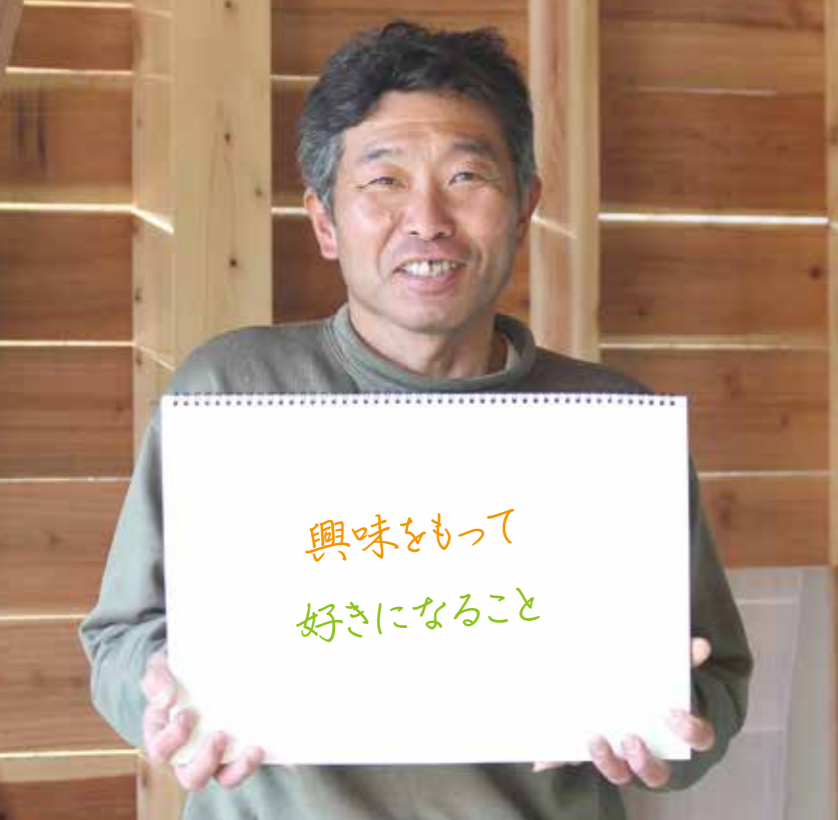 興味をもって
好きになること